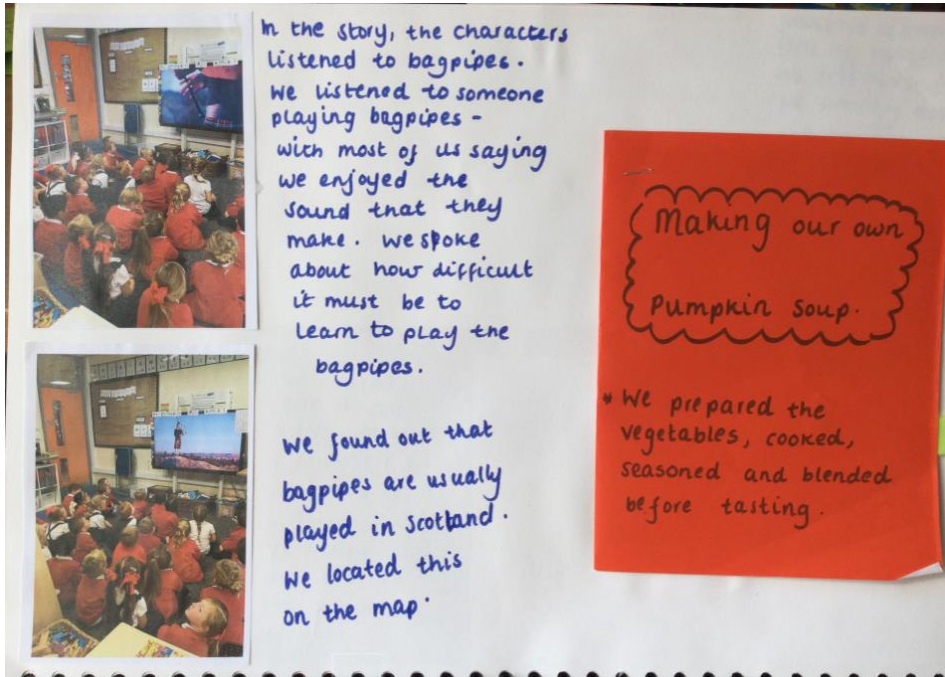 In the story, the characters
listened to bagpipes.
We listened to someone
playing bagpipes -
with most of us saying
we enjoyed the
sound that they
make. We spoke
about how difficult
it must be to
learn to play the
bagpipes.
We found out that
bagpipes are usually
played in Scotland.
We located this
on the map.
Making our own
Pumpkin Soup.
* We prepared the
vegetables, cooked,
seasoned and blended
before tasting.